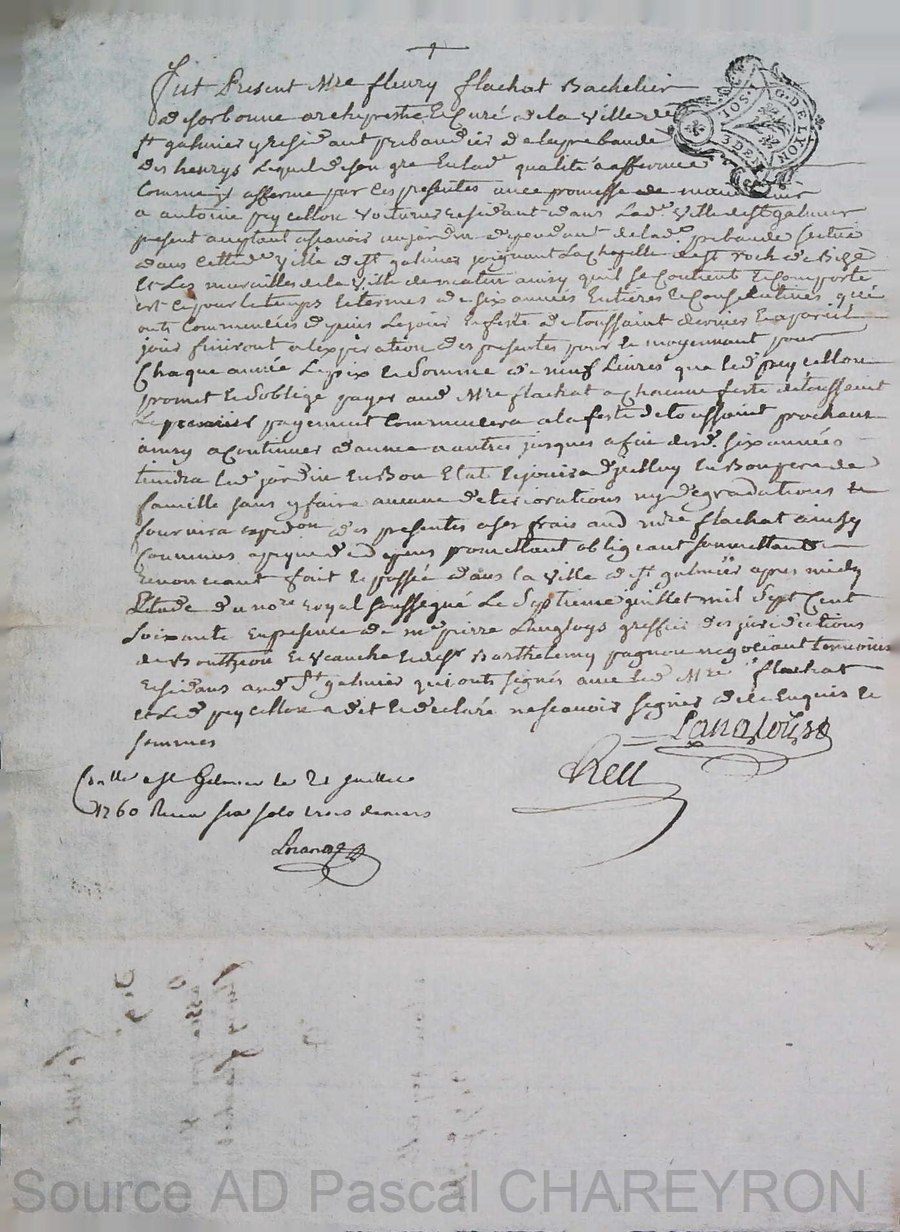 Fut Present Mre fleury flachat Bachelier
de sorbonne archiprestre Et Curé de la Ville de
st galmier y Residant pribandier de la prebande
des henrys Lequel de son gre En lad. qualité a afferme
Comme il afferme par Ces presentes avec promesse de maintenir
a antoine peycellon Voiturier Residant dans Lade. Ville de st galmier
present acceptant ascavoir un jardin dependant de lad. pribande scitue
dans cette de. Ville de st galmier joignant La Chapelle de st roch de Bize
Et Les murailles de la Ville de matin ainsy quil se Contient Et Comporte
et Ce pour le temps Et termes de six années Entieres Et Consecutives qui
ont Commencées depuis Le jour Et feste de toussaint dernier Et a pareil
jour finiront a lexpiration des presentes pour Et moyennant pour
Chaque année Le prix Et Somme de neuf Livres que led. peycellon
promet Et Soblige payer aud. Mre flachat a Chacune feste de toussaint
Le premier payement Commencera a la feste de toussaint prochaine
ainsy a Continuer dannee a autre jusques a fin desd. six années
tiendra led. jardin En Bon Etat Et jouira dicelluy En Bon pere de
famille sans y faire aucune deteriorations ny degradations Et
fournira expedon. des presentes a ses frais aud. mre flachat ainsy
Convenu a peyne de depens promettant obligeant soumettant
Renonceant fait Et passée dans la Ville de st galmier apres midy
Etude du nore. royal soussigné Le Septieme juillet mil Sept Cent
Soixante En presence de me pierre Langloys greffier des jurisdictions
de Bouthéon Et Veauche Et de sr. Barthelemy pagnon negociant temoins
Residans aud. st galmier qui ont signés avec led. Mre flachat
Et Led. peycellon a dit Et declaré ne scavoir signer de ce Enquis Et
sommés
Langloys
Rell
Conlle a St Galmier le 21 Juillet
1760 Receu six sols trois deniers
G. DE LYON
3 DEN
Source AD Pascal CHAREYRON